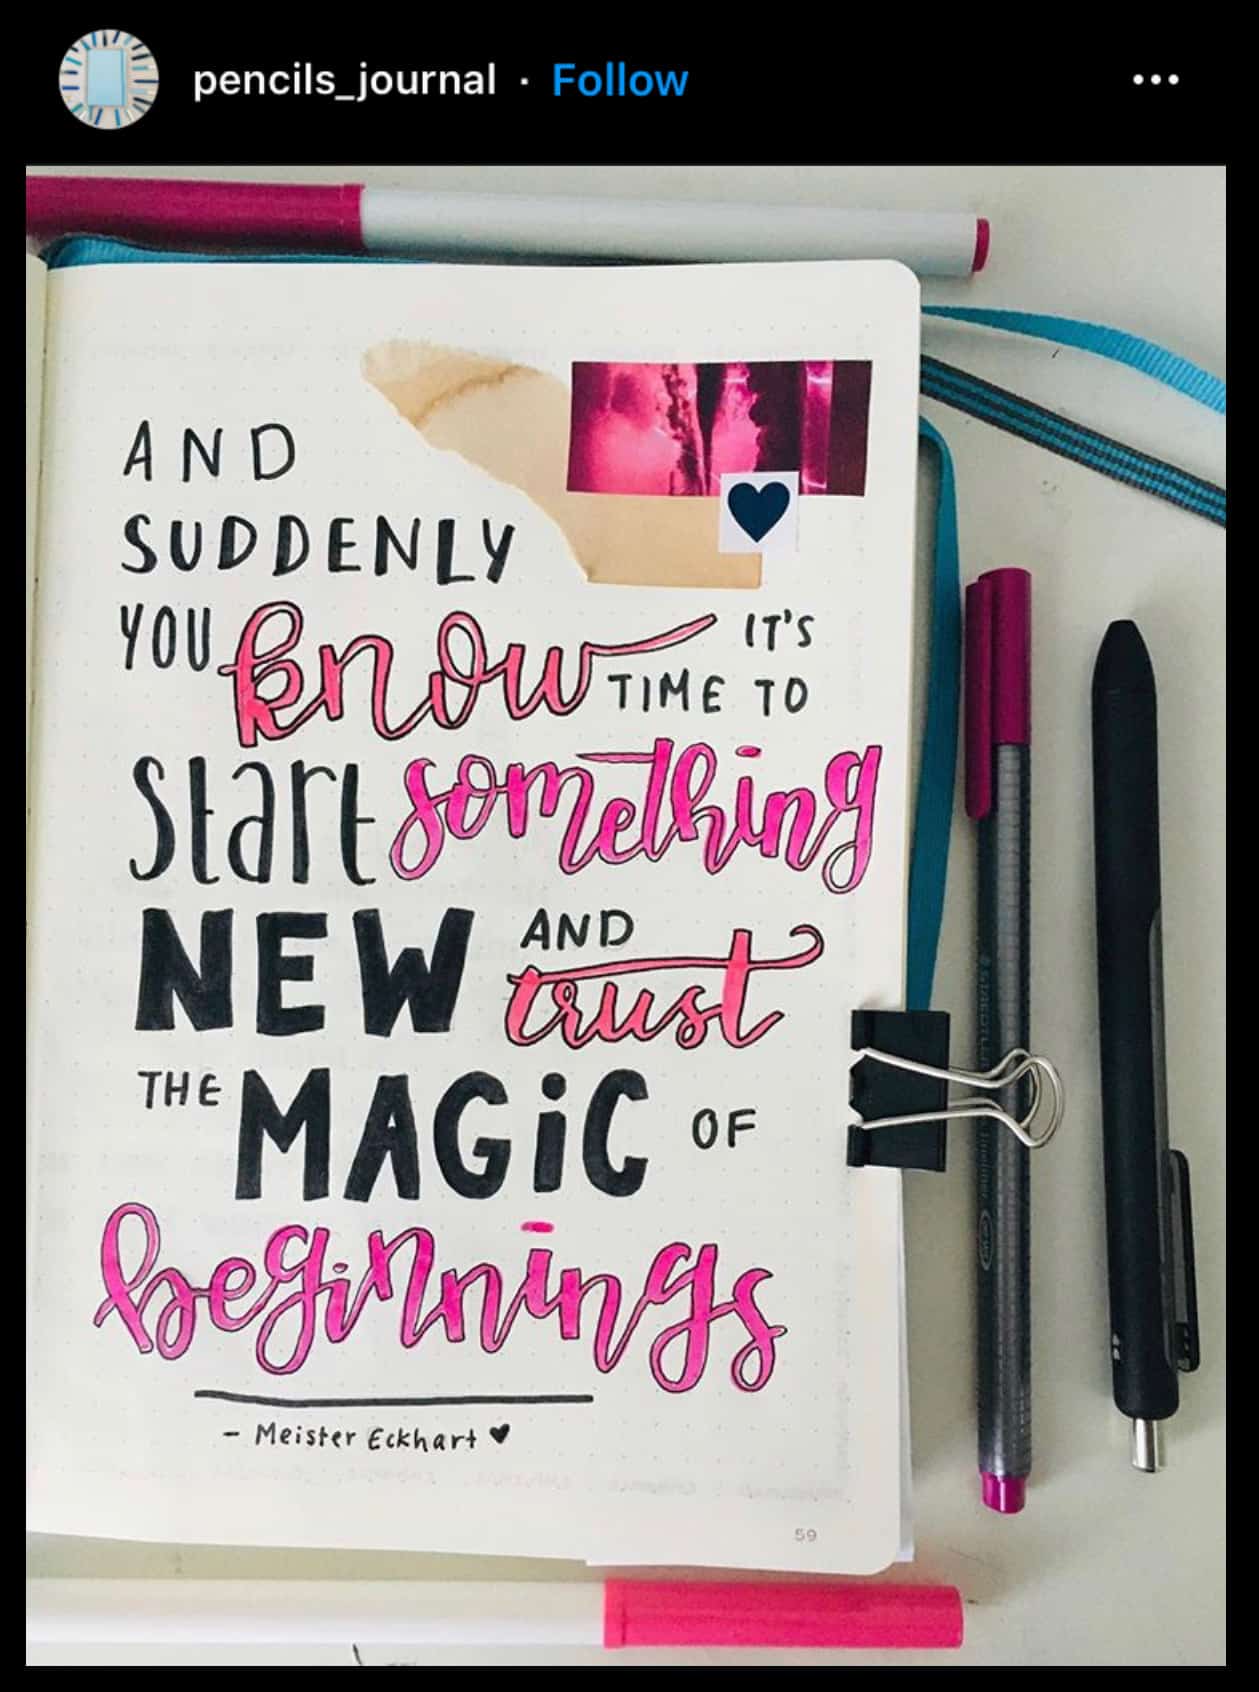 pencils_journal · Follow
AND
SUDDENLY
YOU know IT'S
TIME TO
start something
NEW AND
trust
THE MAGiC OF
beginnings
- Meister Eckhart ♥
59